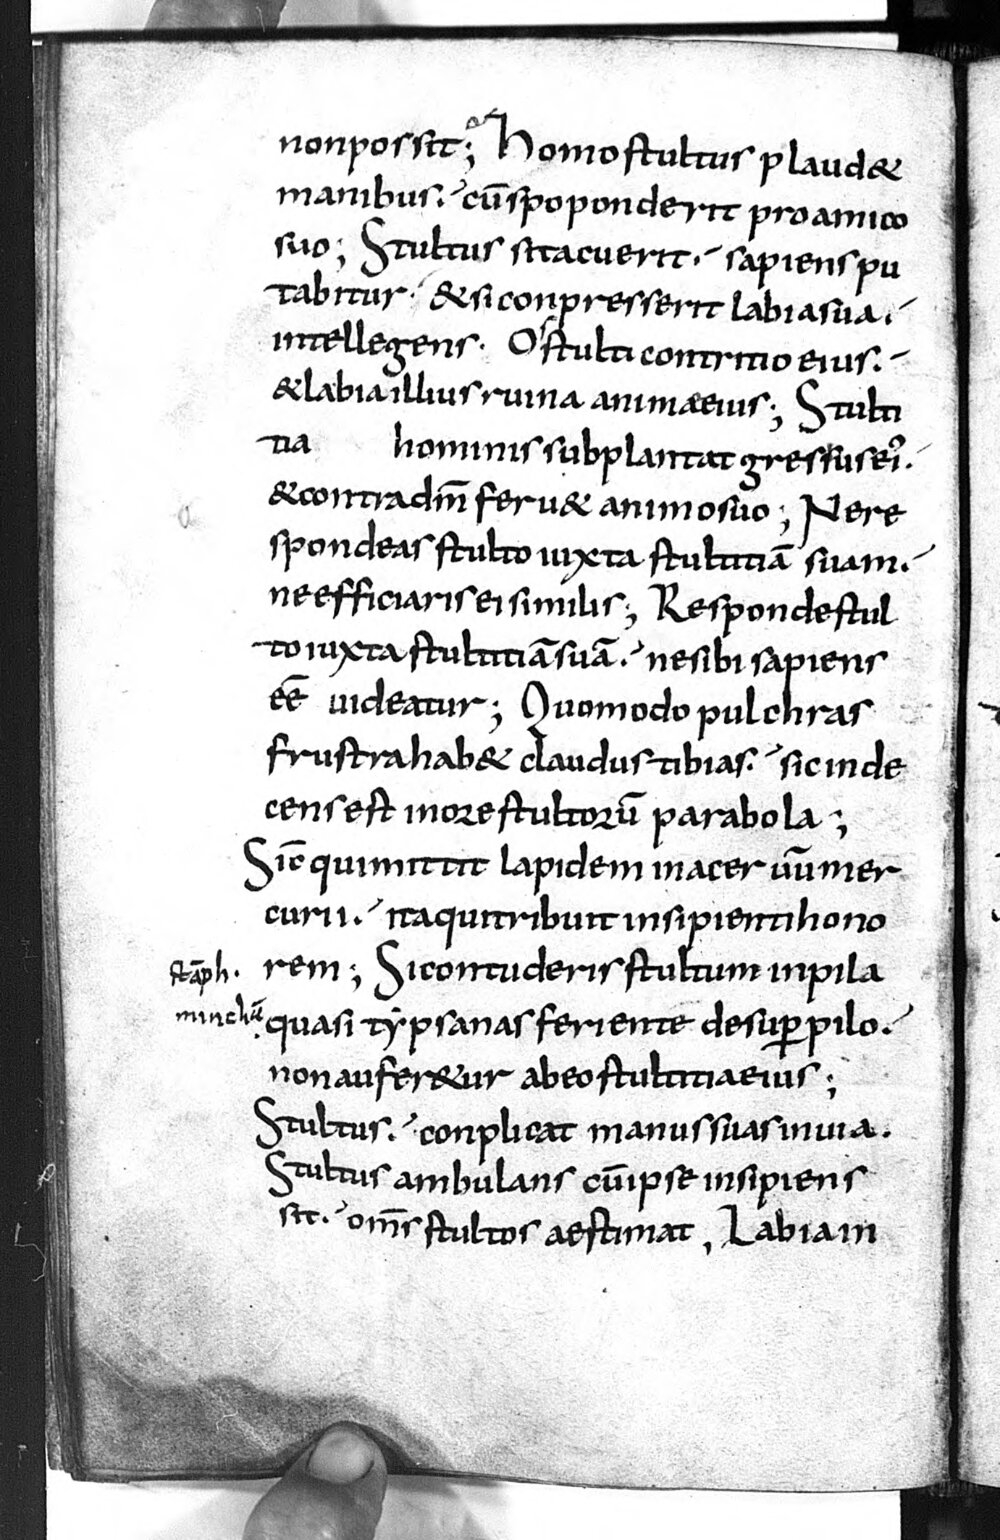 non possit; Homo stultus plaud&
manibus. cū spoponderit pro amico
suo; Stultus si tacuerit. sapiens pu
tabitur. & si conpresserit labia sua.
intellegens. Os stulti contritio eius.
& labia illius ruina animae eius; Stulti
tia hominis subplantat gressus ei᾿.
& contra dm̄ feru& animo suo; Ne re
spondeas stulto iuxta stultitiā suam.
ne efficiaris ei similis; Responde stul
to iuxta stultitiā suā. ne sibi sapiens
eē uideatur; Quomodo pulchras
frustra hab& claudus tibias. sic inde
cens est in ore stultorū parabola;
Sic qui mittit lapidem in aceruū mer
curii. ita qui tribuit insipienti hono
rem; Si contuderis stultum in pila
quasi typsanas feriente desup̱ pilo.
non aufer&ur ab eo stultitia eius;
Stultus. conplicat manus suas in uia.
Stultus ambulans cū ipse insipiens
sit. om̄s stultos aestimat, Labia in
stāph.